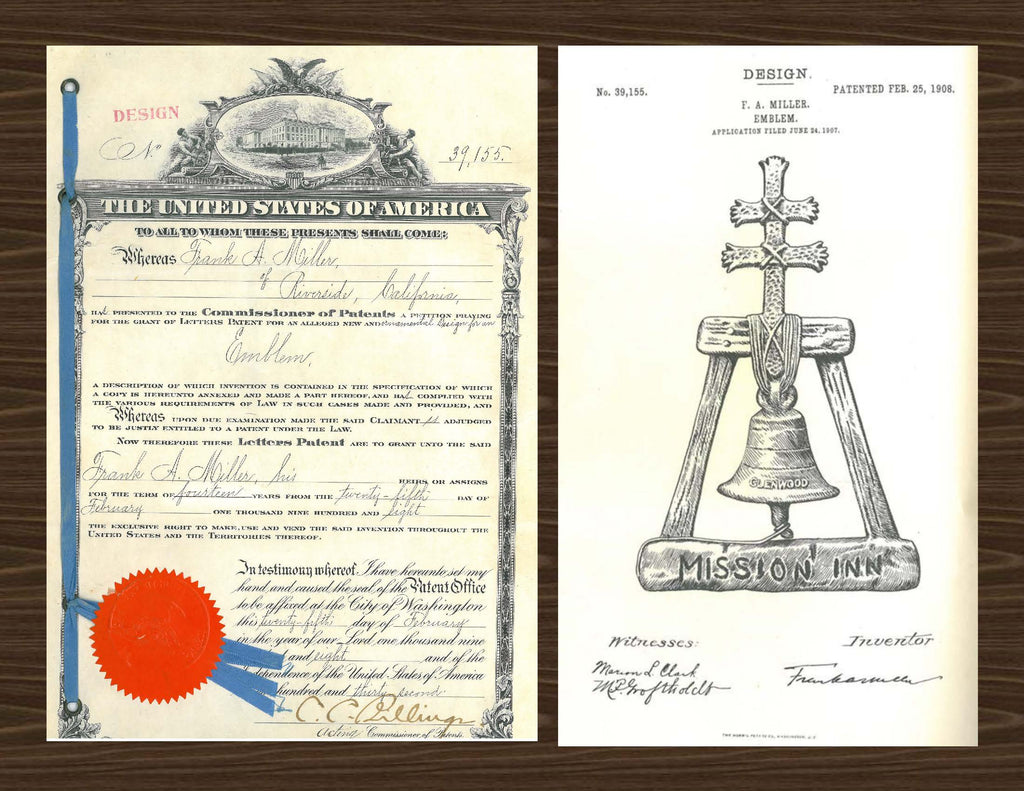 DESIGN
No. 39,155.
THE UNITED STATES OF AMERICA
TO ALL TO WHOM THESE PRESENTS SHALL COME:
Whereas Frank A. Miller,
of
Riverside, California,
HAS PRESENTED TO THE Commissioner of Patents A PETITION PRAYING
FOR THE GRANT OF LETTERS PATENT FOR AN ALLEGED NEW AND ornamental Design for an
Emblem,
A DESCRIPTION OF WHICH INVENTION IS CONTAINED IN THE SPECIFICATION OF WHICH
A COPY IS HEREUNTO ANNEXED AND MADE A PART HEREOF, AND HAS COMPLIED WITH
THE VARIOUS REQUIREMENTS OF LAW IN SUCH CASES MADE AND PROVIDED, AND
Whereas UPON DUE EXAMINATION MADE THE SAID CLAIMANT is ADJUDGED
TO BE JUSTLY ENTITLED TO A PATENT UNDER THE LAW.
NOW THEREFORE THESE Letters Patent ARE TO GRANT UNTO THE SAID
Frank A. Miller, his
HEIRS OR ASSIGNS
FOR THE TERM OF fourteen YEARS FROM THE twenty-fifth DAY OF
February ONE THOUSAND NINE HUNDRED AND eight
THE EXCLUSIVE RIGHT TO MAKE, USE AND VEND THE SAID INVENTION THROUGHOUT THE
UNITED STATES AND THE TERRITORIES THEREOF.
In testimony whereof, I have hereunto set my
hand and caused the seal of the Patent Office
to be affixed at the City of Washington
this twenty-fifth day of February
in the year of our Lord one thousand nine
and eight and of the
of the United States of America
hundred and thirty-second
C. C. Billings
Acting Commissioner of Patents.
DESIGN.
No. 39,155. PATENTED FEB. 25, 1908.
F. A. MILLER.
EMBLEM.
APPLICATION FILED JUNE 24, 1907.
GLENWOOD
MISSION INN
Witnesses: Inventor
Marion L. Clark
Frank A Miller